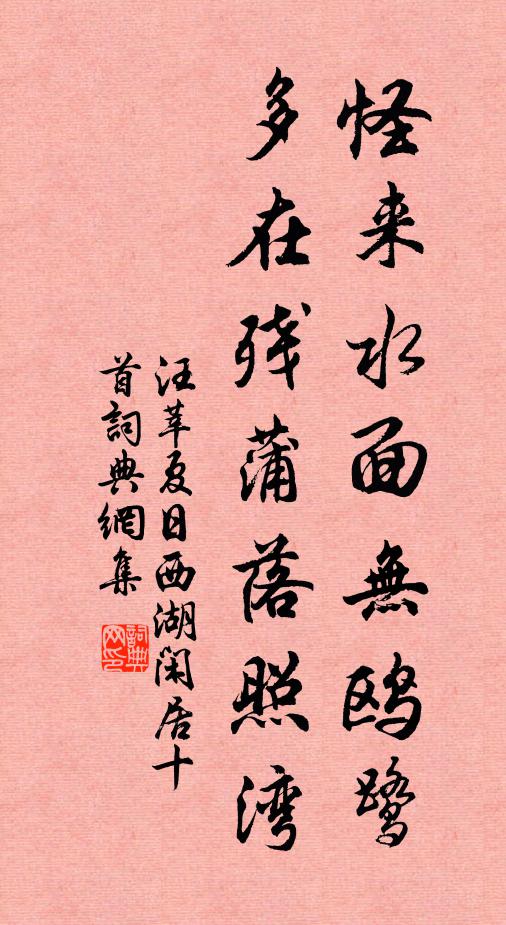 怪来水面無鷗鷺
多在残蒲落照湾
汪莘夏日西湖闲居十
首詞典網集
詞典网印